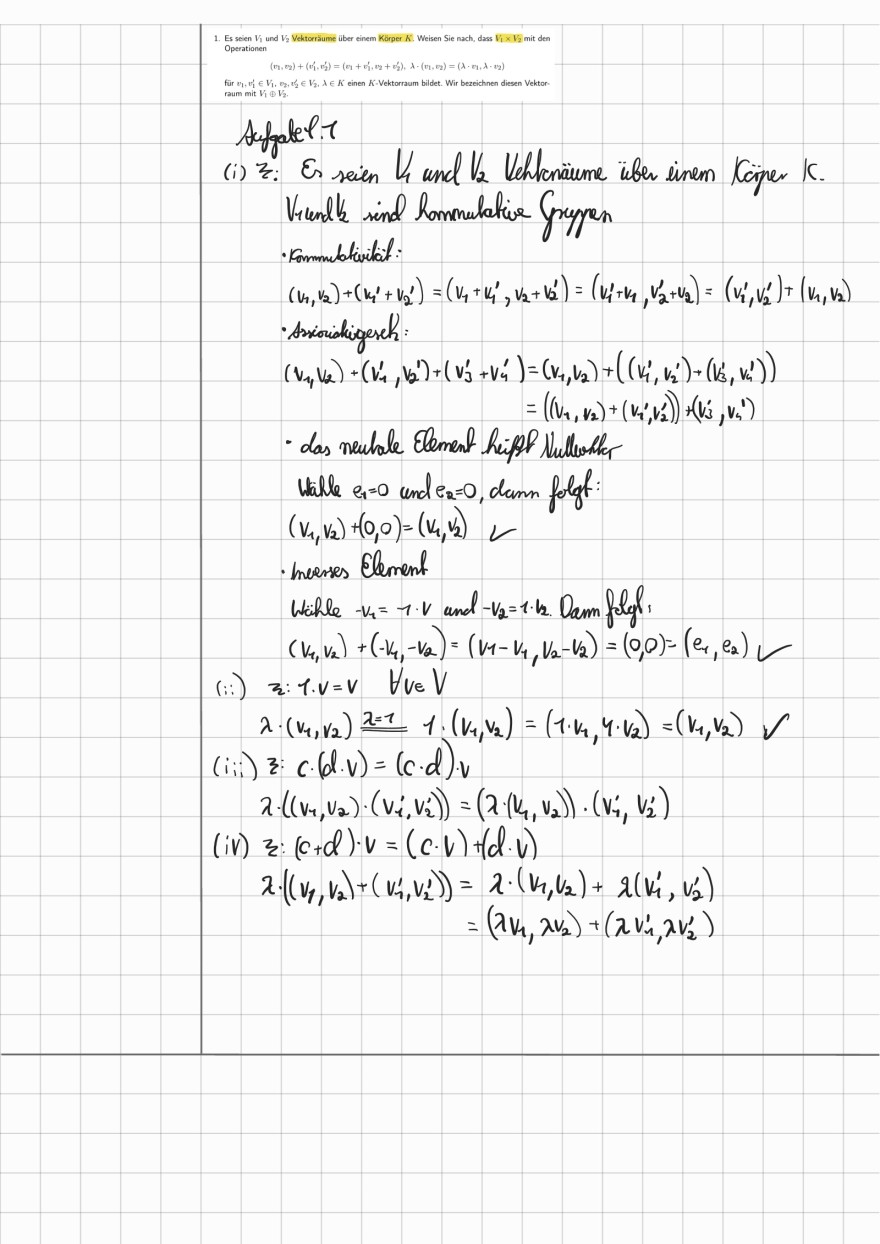 1. Es seien V₁ und V₂ Vektorräume über einem Körper K. Weisen Sie nach, dass V₁ × V₂ mit den
Operationen
(v₁, v₂) + (v₁', v₂') = (v₁ + v₁', v₂ + v₂'), λ · (v₁, v₂) = (λ · v₁, λ · v₂)
für v₁, v₁' ∈ V₁, v₂, v₂' ∈ V₂, λ ∈ K einen K-Vektorraum bildet. Wir bezeichnen diesen Vektor-
raum mit V₁ ⊕ V₂.
Aufgabe 1.1
(i) Z: Es seien V₁ und V₂ Vektorräume über einem Körper K.
V₁ und V₂ sind kommutative Gruppen
• Kommutativität:
(v₁, v₂)+(v₁' + v₂') = (v₁ + v₁', v₂ + v₂') = (v₁'+v₁, v₂'+v₂) = (v₁', v₂') + (v₁, v₂)
• Assoziativgesetz:
(v₁, v₂) + (v₁', v₂') + (v₃' + v₄') = (v₁, v₂) + ((v₁', v₂') + (v₃', v₄'))
= ((v₁, v₂) + (v₁', v₂')) + (v₃', v₄')
• das neutrale Element heißt Nullvektor
Wähle e₁=0 und e₂=0, dann folgt:
(v₁, v₂) + (0,0) = (v₁, v₂) ✓
• Inverses Element
Wähle -v₁ = -1·v und -v₂ = 1·v₂. Dann folgt:
(v₁, v₂) + (-v₁, -v₂) = (v₁ - v₁, v₂ - v₂) = (0,0) = (e₁, e₂) ✓
(ii) z: 1·v = v ∀v∈V
λ·(v₁, v₂) λ=1 = 1·(v₁, v₂) = (1·v₁, 1·v₂) = (v₁, v₂) ✓
(iii) z: c·(d·v) = (c·d)·v
λ·((v₁, v₂)·(v₁', v₂')) = (λ·(v₁, v₂))·(v₁', v₂')
(iv) z: (c+d)·v = (c·v)+(d·v)
λ·((v₁, v₂)+(v₁', v₂')) = λ·(v₁, v₂) + λ(v₁', v₂')
= (λv₁, λv₂) + (λv₁', λv₂')